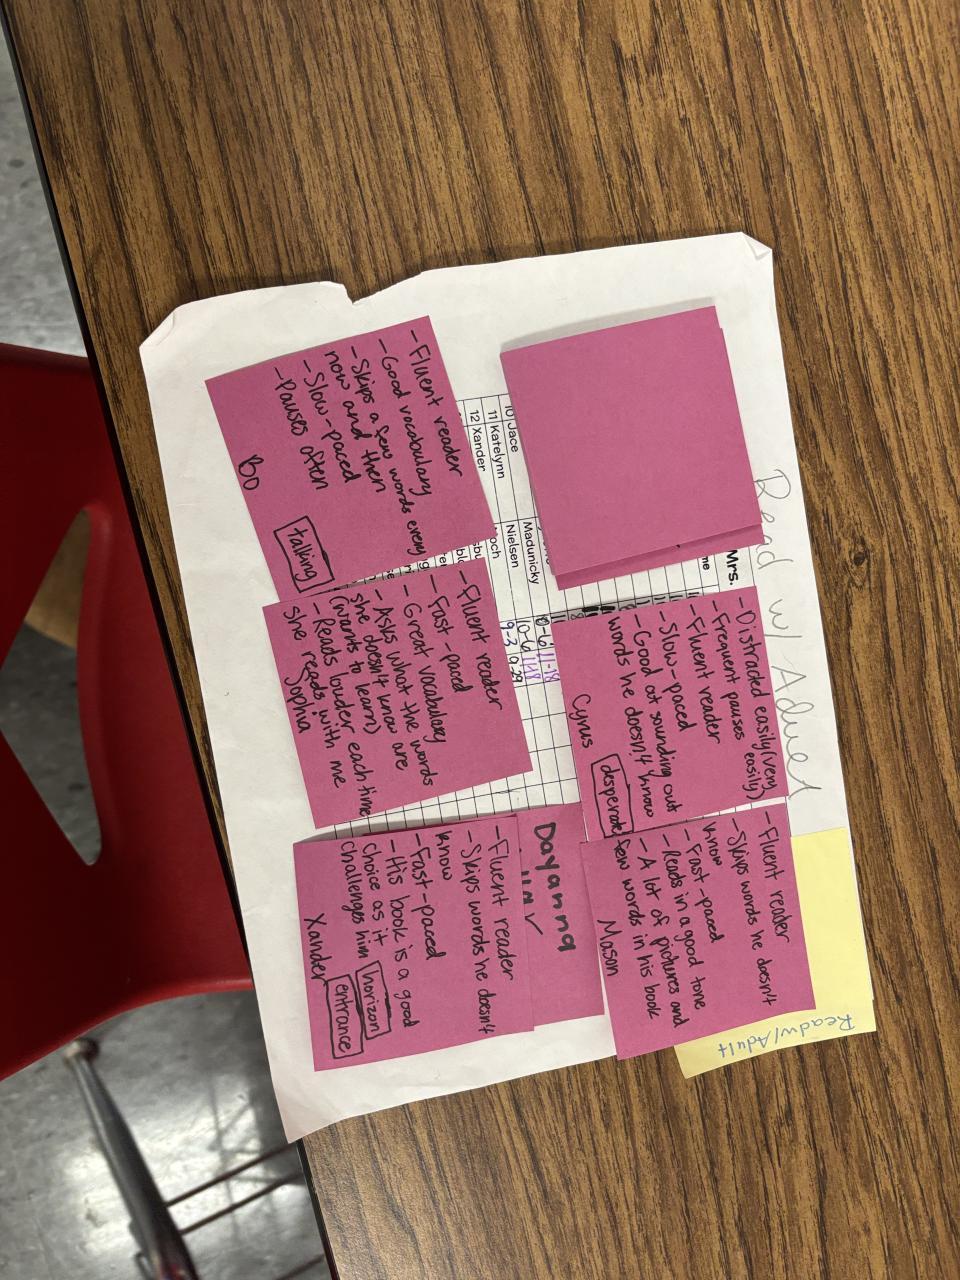 Read w/ Adult
Mrs.
10 Jace
11 Katelynn
12 Xander
Madunicky
Nielsen
10-6 11-18
10-6 11-8
9-3 9-29
- Distracted easily (very
easily)
- Frequent pauses
- Fluent reader
- Slow-paced
- Good at sounding out
words he doesn't know
Cyrus
desperate
- Fluent reader
- Skips words he doesn't
know
- Fast-paced
- Reads in a good tone
- A lot of pictures and
few words in his book
Mason
Read w/Adult
- Fluent reader
- Good vocabulary
- Skips a few words every
now and then
- Slow-paced
- Pauses often
Bo
talking
- Fluent reader
- Fast-paced
- Great vocabulary
- Asks what the words
she doesn't know are
(wants to learn)
- Reads louder each time
she reads with me
Sophia
Dayanna
- Fluent reader
- Skips words he doesn't
know
- Fast-paced
- His book is a good
choice as it
challenges him
Xander
horizon
entrance